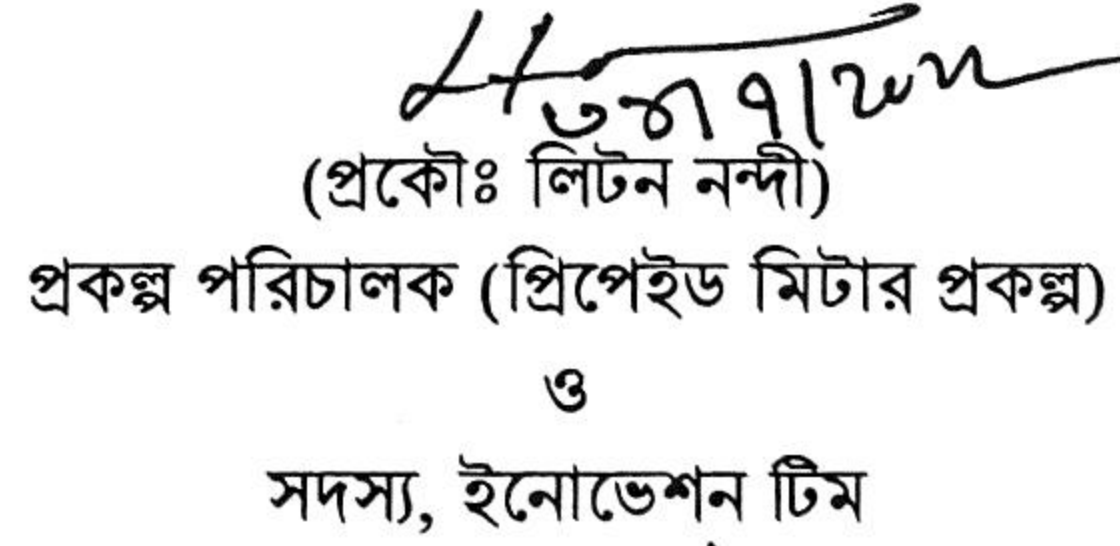 (প্রকৌঃ লিটন নন্দী)
প্রকল্প পরিচালক (প্রিপেইড মিটার প্রকল্প)
ও
সদস্য, ইনোভেশন টিম